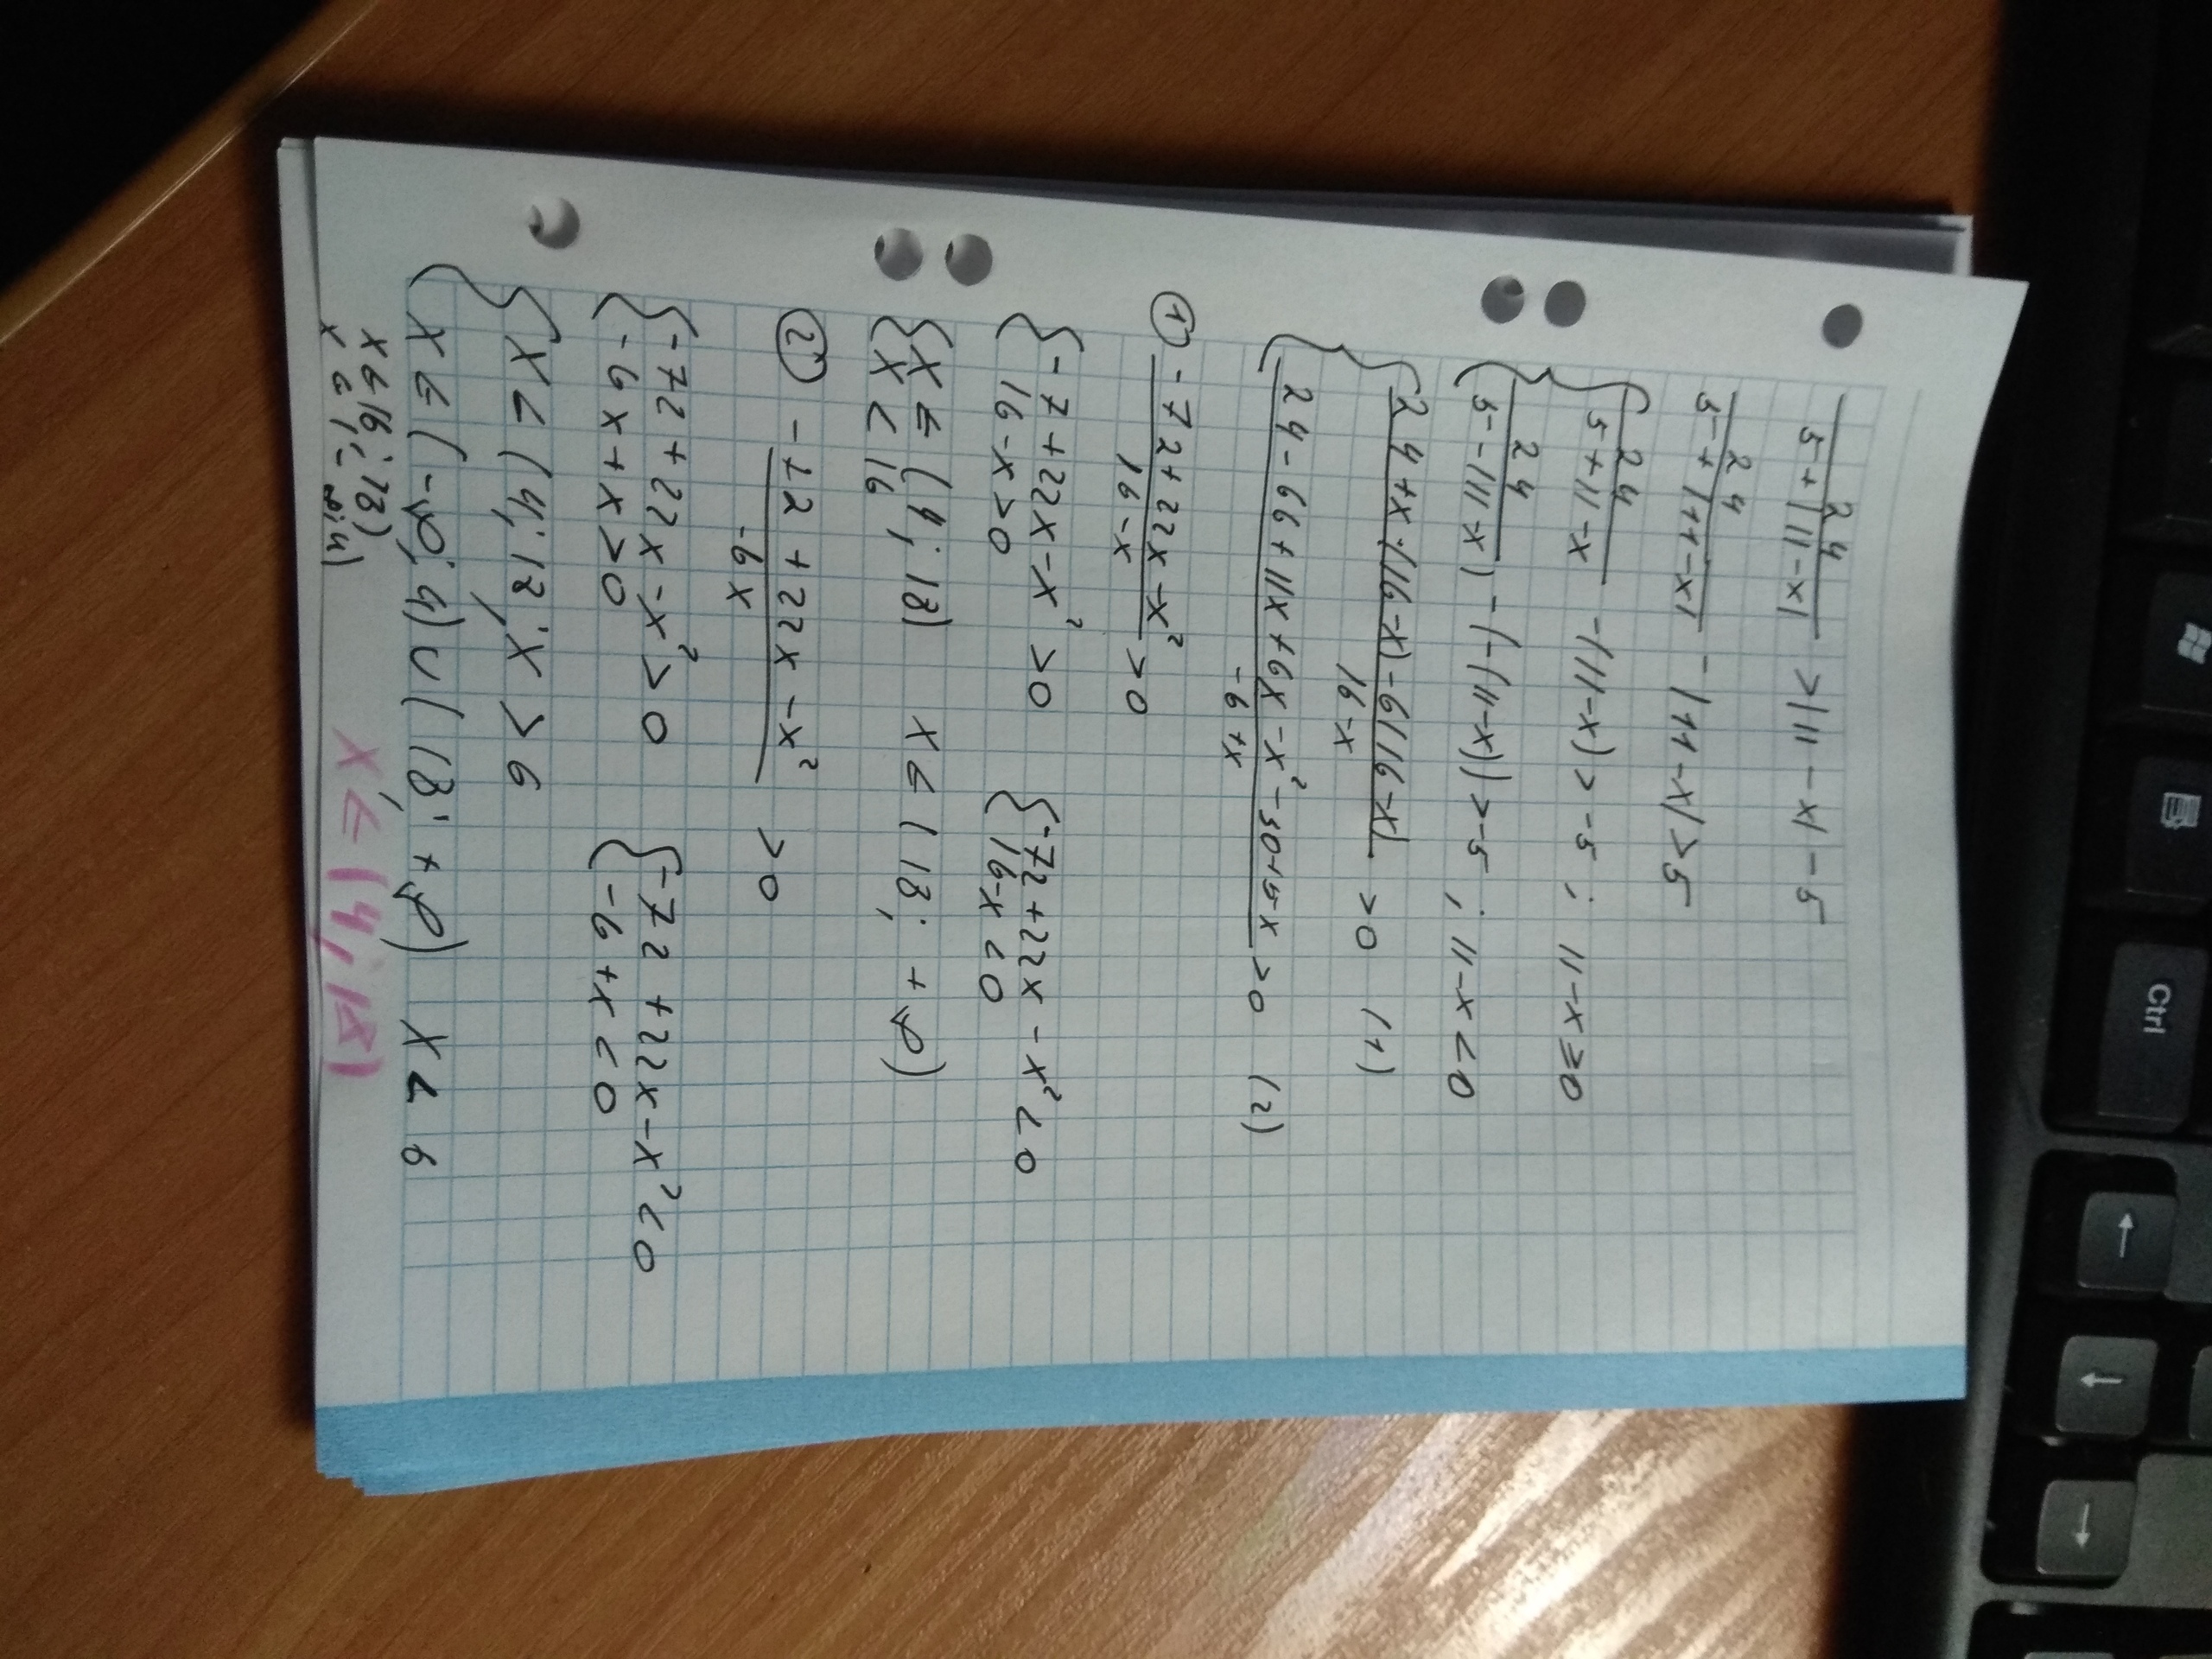 24
5+|11-x| >|11-x|-5
24
5+|11-x| -|11-x|>5
{ 24
5+11-x -(11-x)>-5; 11-x≥0
{ 24
5-(11-x) -(-(11-x))>-5; 11-x<0
{ 24+x·(16-x)-6(16-x)
16-x >0 (1)
{ 24-66+11x+6x-x²-30+5x
-6+x >0 (2)
① -72+22x-x²
16-x >0
{ -7+22x-x²>0 { -72+22x-x²<0
16-x>0 16-x<0
{ x∈(4;18) x∈(18;+∞)
x<16
② - +2+22x-x²
-6x >0
{ -72+22x-x²>0 { -72+22x-x²<0
-6x+x>0 -6+x<0
{ x∈(4;18; x>6
{ x∈(-∞;4)∪(18;+∞) x<6
x∈(6;18) x∈(4;18)
Ctrl